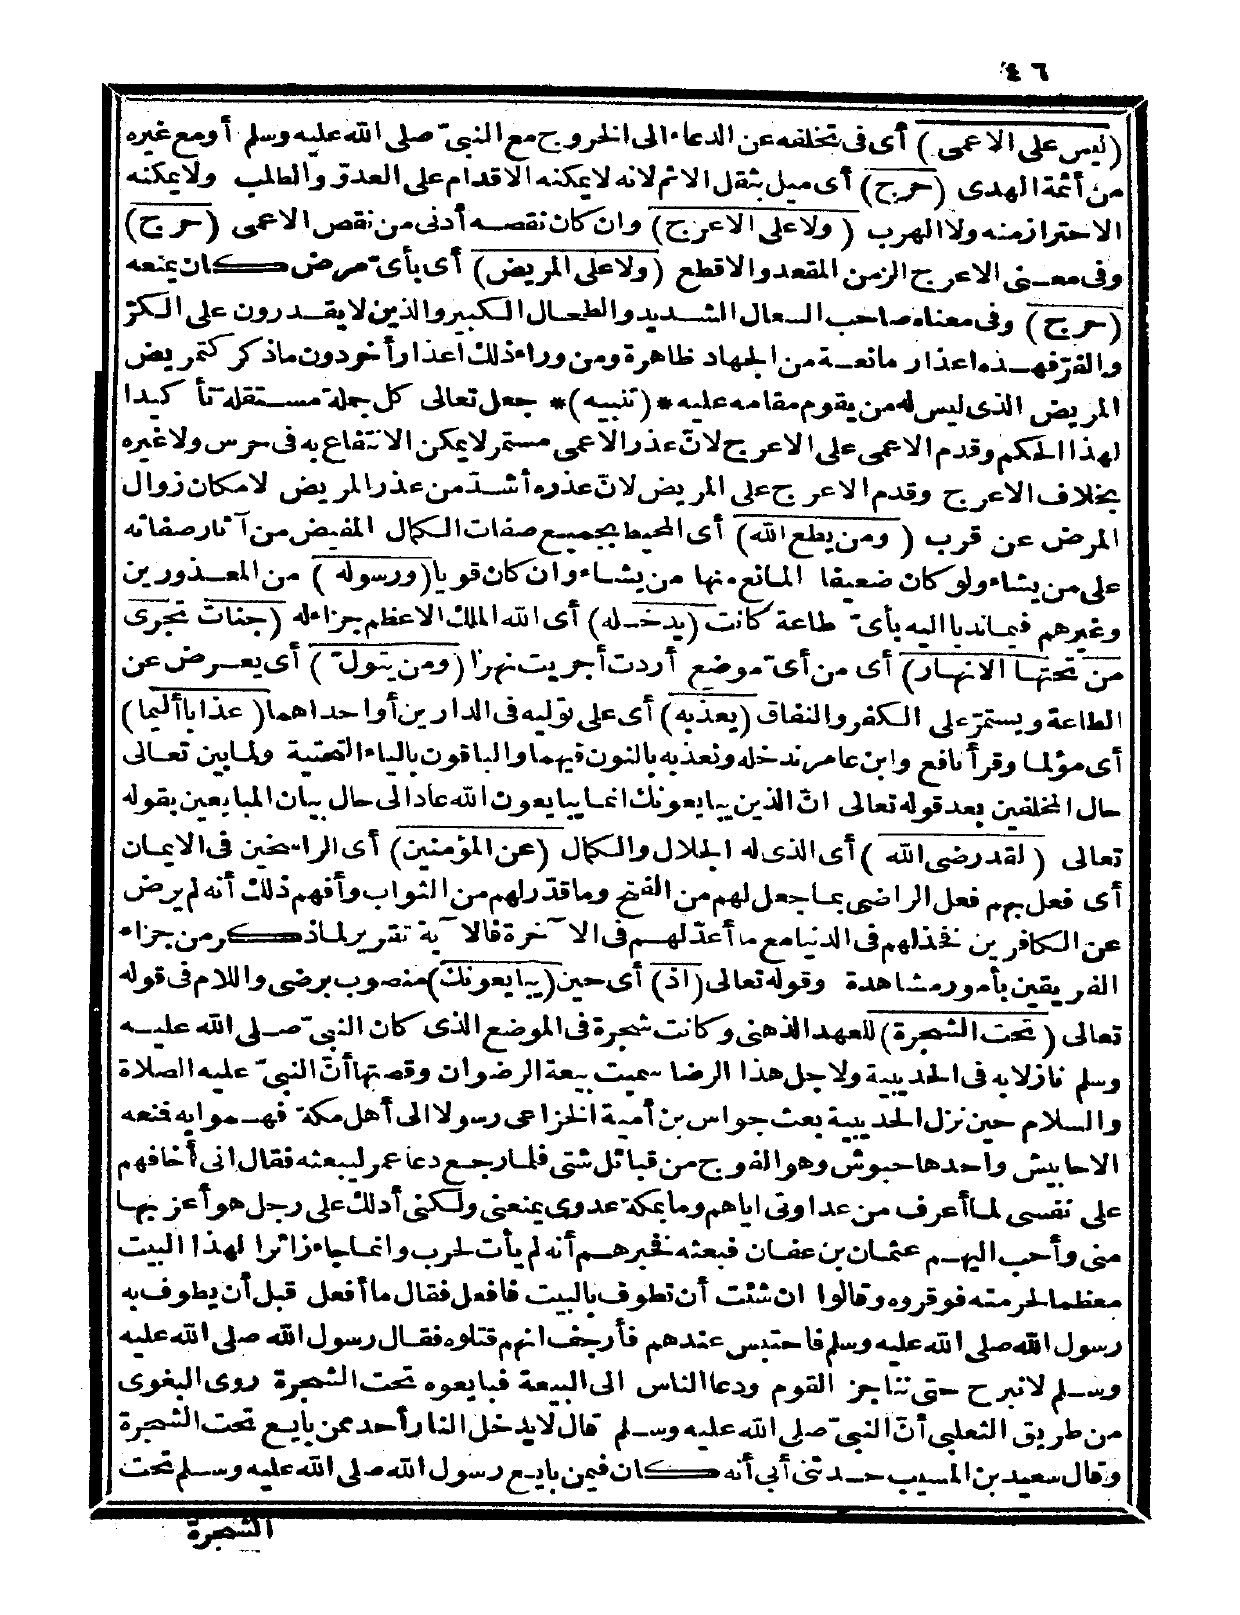 ٤٦
(ليس على الاعمى) أى فى تخلفه عن الدعاء الى الخروج مع النبىّ صلى الله عليه وسلم أو مع غيره
من أئمة الهدى (حرج) أى ميل بثقل الاثم لانه لا يمكنه الاقدام على العدوّ والطلب ولا يمكنه
الاحتراز منه ولا الهرب (ولا على الاعرج) وان كان نقصه أدنى من نقص الاعمى (حرج)
وفى معنى الاعرج الزمن المقعد والاقطع (ولا على المريض) أى بأىّ مرض كان يمنعه
(حرج) وفى معناه صاحب السعال الشديد والطحال الكبير والذين لا يقدرون على الكرّ
والفرّ فهذه اعذار مانعة من الجهاد ظاهرة ومن وراء ذلك أعذار أخر دون ما ذكر كتمريض
المريض الذى ليس له من يقوم مقامه عليه * (تنبيه) * جعل تعالى كل جملة مستقلة تأكيدا
لهذا الحكم وقدم الاعمى على الاعرج لانّ عذر الاعمى مستمر لا يمكن الانتفاع به فى حرس ولا غيره
بخلاف الاعرج وقدم الاعرج على المريض لانّ عذره أشدّ من عذر المريض لامكان زوال
المرض عن قرب (ومن يطع الله) أى المحيط بجميع صفات الكمال المفيض من آثار صفاته
على من يشاء ولو كان ضعيفا المانع منها من يشاء وان كان قويا (ورسوله) من المعذورين
وغيرهم فيما ندبا اليه بأىّ طاعة كانت (يدخله) أى الله الملك الاعظم جزاء له (جنات تجرى
من تحتها الانهار) أى من أىّ موضع أردت أجريت نهرا (ومن يتولّ) أى يعرض عن
الطاعة ويستمرّ على الكفر والنفاق (يعذبه) أى على توليه فى الدارين أو احداهما (عذابا أليما)
أى مؤلما وقرأ نافع وابن عامر ندخله ونعذبه بالنون فيهما والباقون بالياء التحتية ولما بين تعالى
حال المخلفين بعد قوله تعالى انّ الذين يبايعونك انما يبايعون الله عاد الى حال بيان المبايعين بقوله
تعالى (لقد رضى الله) أى الذى له الجلال والكمال (عن المؤمنين) أى الراسخين فى الايمان
أى فعل بهم فعل الراضى بما جعل لهم من الفتح وما قدّر لهم من الثواب وأفهم ذلك أنه لم يرض
عن الكافرين فخذلهم فى الدنيا مع ما أعدّ لهم فى الآخرة فالآية تقرير لما ذكر من جزاء
الفريقين بأمور مشاهدة وقوله تعالى (اذ) أى حين (يبايعونك) منصوب برضى واللام فى قوله
تعالى (تحت الشجرة) للعهد الذهنى وكانت شجرة فى الموضع الذى كان النبىّ صلى الله عليه
وسلم نازلا به فى الحديبية ولاجل هذا الرضا سميت بيعة الرضوان وقصتها أنّ النبىّ عليه الصلاة
والسلام حين نزل الحديبية بعث جواس بن أمية الخزاعى رسولا الى أهل مكة فهموا به فنعه
الاحابيش واحدها حبوش وهو الفوج من قبائل شتى فلما رجع دعا عمر ليبعثه فقال انى أخافهم
على نفسى لما أعرف من عداوتى اياهم وما بمكة عدوى يمنعنى ولكنى أدلك على رجل هو أعز بها
منى وأحب اليهم عثمان بن عفان فبعثه فخبرهم أنه لم يأت لحرب وانما جاء زائرا لهذا البيت
معظما لحرمته فوقروه وقالوا ان شئت أن تطوف بالبيت فافعل فقال ما أفعل قبل أن يطوف به
رسول الله صلى الله عليه وسلم فاحتبس عندهم فأرجف انهم قتلوه فقال رسول الله صلى الله عليه
وسلم لا نبرح حتى نناجز القوم ودعا الناس الى البيعة فبايعوه تحت الشجرة روى البغوى
من طريق الثعلبى أنّ النبىّ صلى الله عليه وسلم قال لا يدخل النار أحد ممن بايع تحت الشجرة
وقال سعيد بن المسيب حدثنى أبى أنه كان فيمن بايع رسول الله صلى الله عليه وسلم تحت
الشجرة